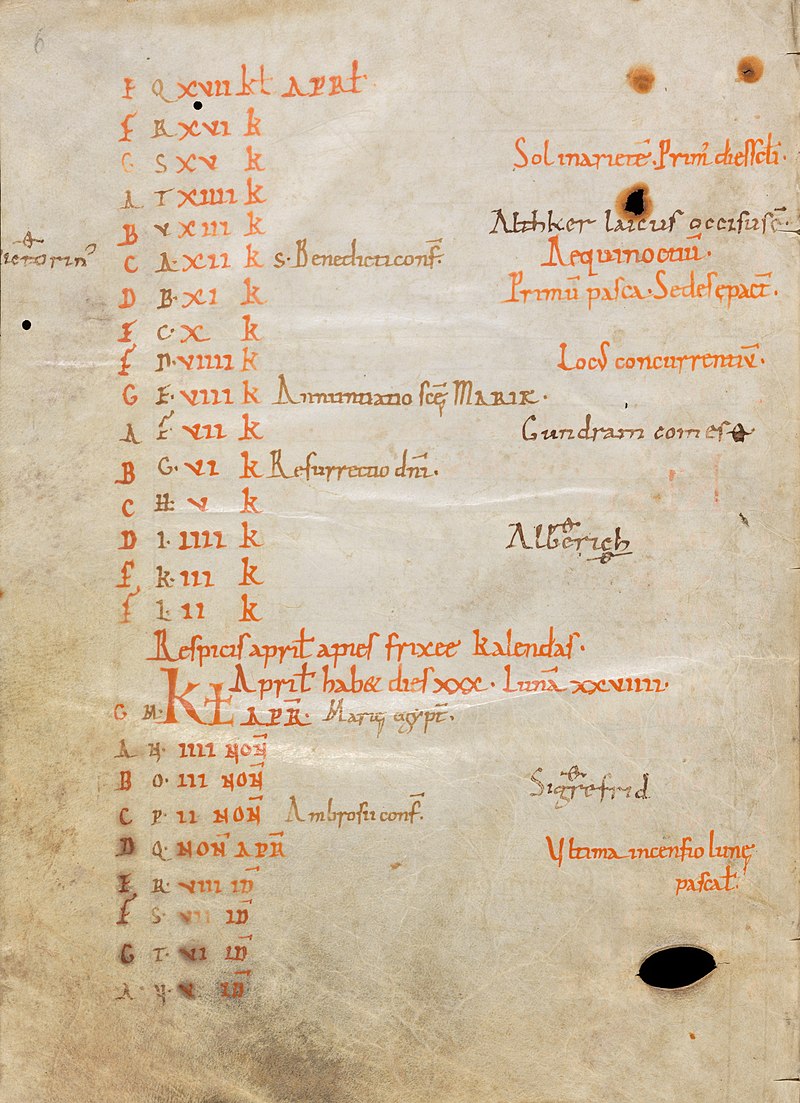 6
E Q XVII kł APRł
F R XVI k
G S XV k Sol in ariete. Prim' dies scłi.
A T XIIII k
B V XIII k Althker laicus occisus ē
C A· XII k S· Benedicti conf̄. Aequinoctiū.
D B· XI k Primū pasca· Sedes epact̄.
E C· X k
F D· VIIII k Locus concurrentiū.
G E· VIII k Annuntiatio scę MARIE·
A F· VII k Gundram comes
B G· VI k Resurrectio dn̄i.
C H· V k
D I· IIII k Alberich
E k· III k
F L· II k
Respicis aprił apies frixee kalendas.
KŁ Aprił hab& dies XXX· Lunā XXVIIII·
G M· APR̄· Marię egypt̄·
A N· IIII NON̄
B O· III NON̄ Sigrefrid
C P· II NON̄ Ambrosii conf̄.
D Q· NON̄ APR̄ Ultima incensio lunę
pascał
E R· VIII ID̄
F S· VII ID̄
G T· VI ID̄
A V· V ID̄